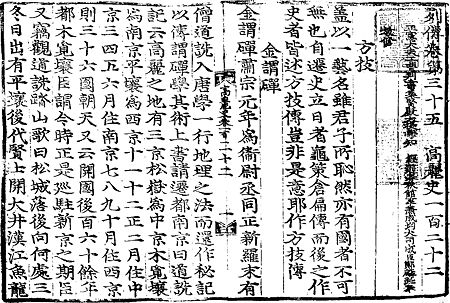 列傳卷第三十五 高麗史一百二十二
方技
蓋以一藝名雖君子所恥然亦有國者不可
無也自遷史立日者龜策倉扁傳而後之作
史者皆述方技傳豈非是意耶作方技傳
金謂磾
金謂磾肅宗元年爲衛尉丞同正新羅末有
僧道詵入唐學一行地理之法而還作秘記
以傳謂磾學其術上書請遷都南京曰道詵
記云高麗之地有三京松嶽爲中京木覓壤
爲南京平壤爲西京十一十二正二月住中
京三四五六月住南京七八九十月住西京
則三十六國朝天又云開國後百六十餘年
都木覓壤臣謂今時正是巡駐新京之期臣
又竊觀道詵踏山歌曰松城落後向何處三
冬日出有平壤後代賢士開大井漢江魚龍